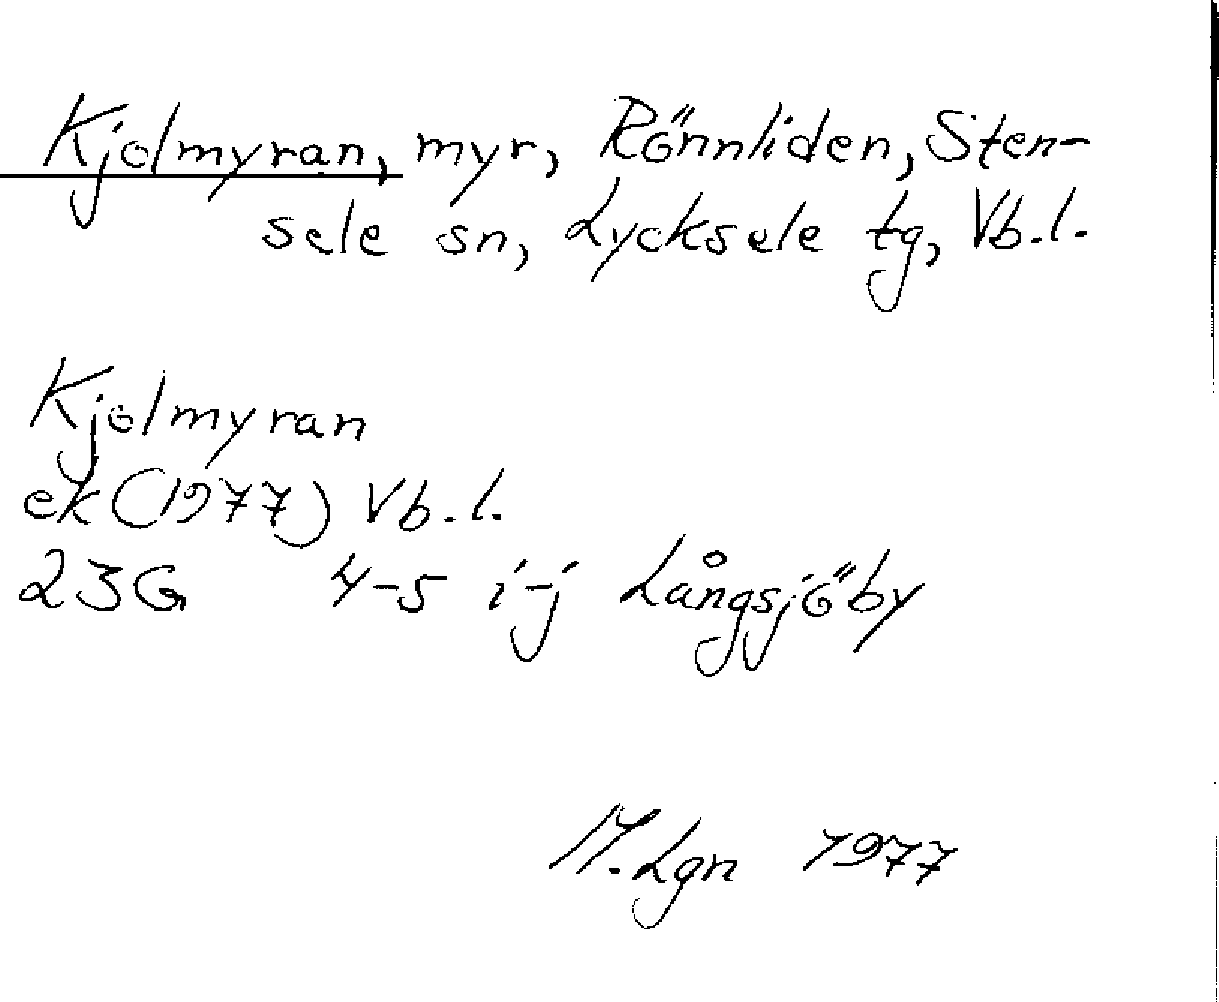 Kjolmyran, myr, Rönnliden, Sten-
sele sn, Lycksele tg, Vb.l.
Kjolmyran
ek (1977) Vb.l.
23G 4-5 i-j Långsjöby
M. Lgn 1977